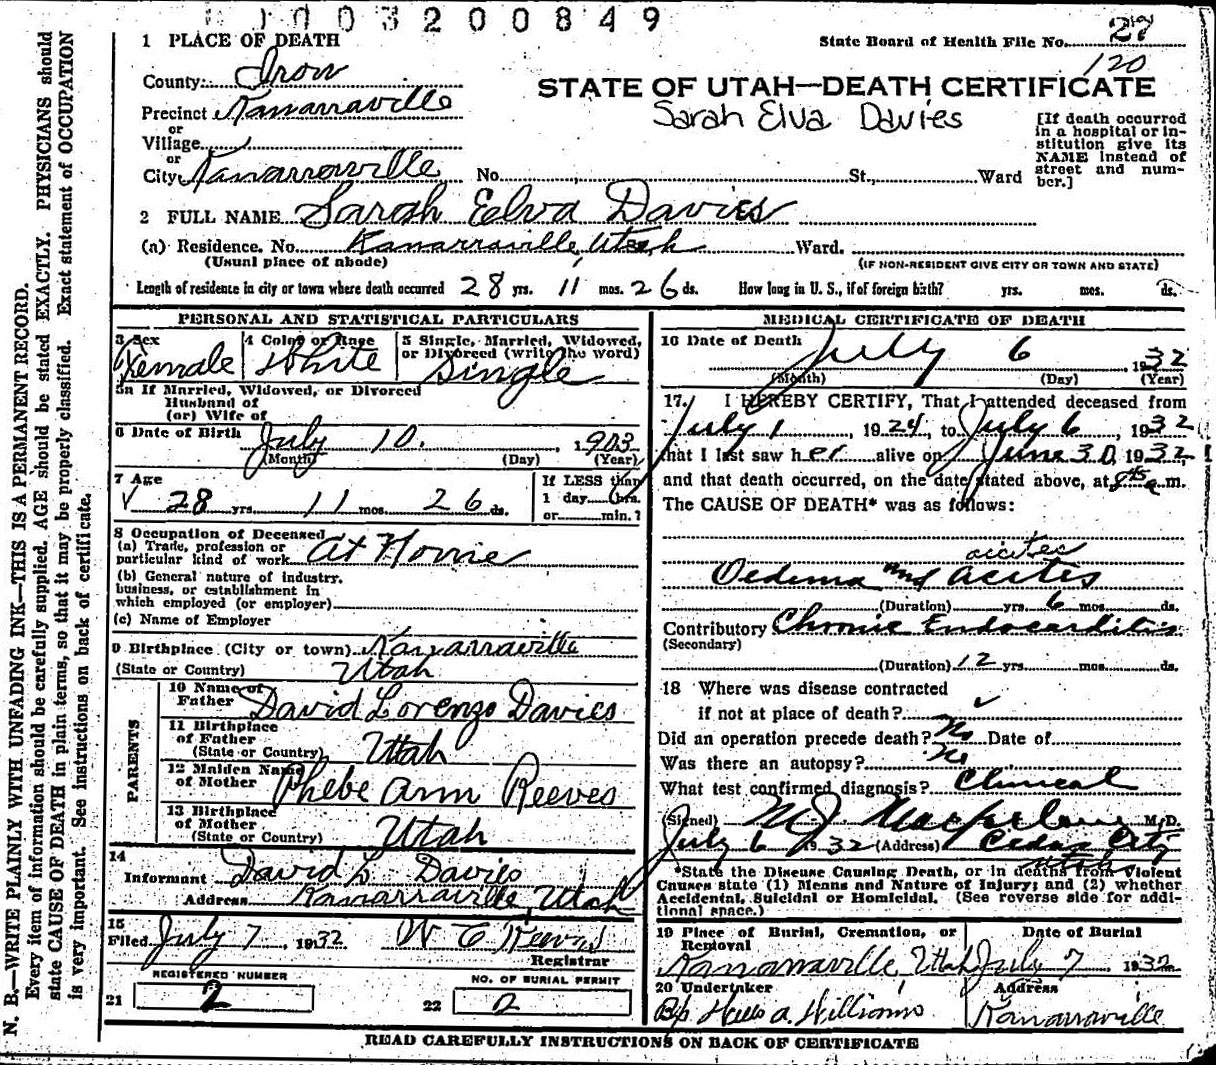 003200849
1 PLACE OF DEATH
State Board of Health File No. 27
120
County: Iron
STATE OF UTAH—DEATH CERTIFICATE
Precinct Kanarraville
Sarah Elva Davies
or
Village
or
City Kanarraville No. St., Ward
[If death occurred
in a hospital or in-
stitution give its
NAME instead of
street and num-
ber.]
2 FULL NAME Sarah Elva Davies
(a) Residence. No. Kanarraville, Utah Ward.
(Usual place of abode) (IF NON-RESIDENT GIVE CITY OR TOWN AND STATE)
Length of residence in city or town where death occurred 28 yrs. 11 mos. 26 ds. How long in U. S., if of foreign birth? yrs. mos. ds.
PERSONAL AND STATISTICAL PARTICULARS
3 Sex 4 Color or Race 5 Single, Married, Widowed,
or Divorced (write the word)
Female White Single
5a If Married, Widowed, or Divorced
Husband of
(or) Wife of
6 Date of Birth July 10. 1903
(Month) (Day) (Year)
7 Age
28 yrs. 11 mos. 26 ds.
If LESS than
1 day hrs.
or min.?
8 Occupation of Deceased
(a) Trade, profession or
particular kind of work At Home
(b) General nature of industry,
business, or establishment in
which employed (or employer)
(c) Name of Employer
9 Birthplace (City or town) Kanarraville
(State or Country) Utah
PARENTS
10 Name of
Father David Lorenzo Davies
11 Birthplace
of Father
(State or Country) Utah
12 Maiden Name
of Mother Phebe Ann Reeves
13 Birthplace
of Mother
(State or Country) Utah
14
Informant David L. Davies
Address Kanarraville, Utah
15
Filed July 7, 1932 W C Reeves
Registrar
REGISTERED NUMBER NO. OF BURIAL PERMIT
21 2 22 2
MEDICAL CERTIFICATE OF DEATH
16 Date of Death July 6 1932
(Month) (Day) (Year)
17. I HEREBY CERTIFY, That I attended deceased from
July 1, 1924, to July 6, 1932
that I last saw her alive on June 30, 1932,
and that death occurred, on the date stated above, at 8 a m.
The CAUSE OF DEATH* was as follows:
Oedema and acites
(Duration) yrs. 6 mos. ds.
Contributory Chronic Endocarditis
(Secondary)
(Duration) 12 yrs. mos. ds.
18 Where was disease contracted
if not at place of death?
Did an operation precede death? No Date of
Was there an autopsy? No
What test confirmed diagnosis? Clinical
(Signed) M.D.
July 6 1932 (Address) Cedar City
Utah
*State the Disease Causing Death, or in deaths from Violent
Causes state (1) Means and Nature of Injury; and (2) whether
Accidental, Suicidal or Homicidal. (See reverse side for addi-
tional space.)
19 Place of Burial, Cremation, or
Removal Date of Burial
Kanarraville, Utah July 7 1932
20 Undertaker Address
Williams Kanarraville
READ CAREFULLY INSTRUCTIONS ON BACK OF CERTIFICATE
N. B.—WRITE PLAINLY WITH UNFADING INK—THIS IS A PERMANENT RECORD.
Every item of information should be carefully supplied. AGE should be stated EXACTLY. PHYSICIANS should
state CAUSE OF DEATH in plain terms, so that it may be properly classified. Exact statement of OCCUPATION
is very important. See instructions on back of certificate.